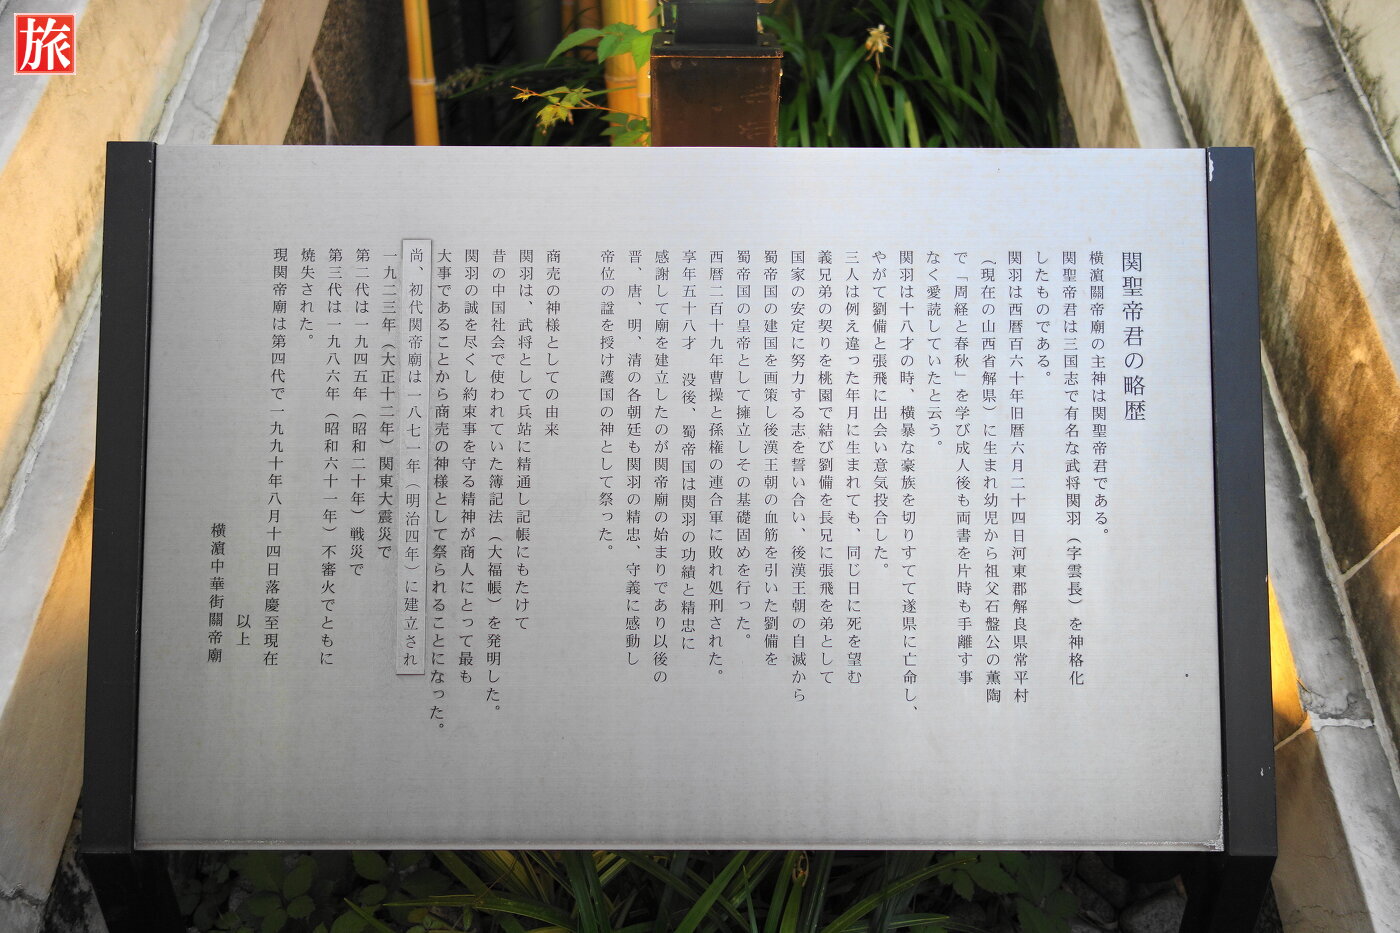 旅
関聖帝君の略歴
横濵關帝廟の主神は関聖帝君である。
関聖帝君は三国志で有名な武将関羽（字雲長）を神格化
したものである。
関羽は西暦百六十年旧暦六月二十四日河東郡解良県常平村
（現在の山西省解県）に生まれ幼児から祖父石盤公の薫陶
で「周経と春秋」を学び成人後も両書を片時も手離す事
なく愛読していたと云う。
関羽は十八才の時、横暴な豪族を切りすてて遂県に亡命し、
やがて劉備と張飛に出会い意気投合した。
三人は例え違った年月に生まれても、同じ日に死を望む
義兄弟の契りを桃園で結び劉備を長兄に張飛を弟として
国家の安定に努力する志を誓い合い、後漢王朝の自滅から
蜀帝国の建国を画策し後漢王朝の血筋を引いた劉備を
蜀帝国の皇帝として擁立しその基礎固めを行った。
西暦二百十九年曹操と孫権の連合軍に敗れ処刑された。
享年五十八才　没後、蜀帝国は関羽の功績と精忠に
感謝して廟を建立したのが関帝廟の始まりであり以後の
晋、唐、明、清の各朝廷も関羽の精忠、守義に感動し
帝位の諡を授け護国の神として祭った。
商売の神様としての由来
関羽は、武将として兵站に精通し記帳にもたけて
昔の中国社会で使われていた簿記法（大福帳）を発明した。
関羽の誠を尽くし約束事を守る精神が商人にとって最も
大事であることから商売の神様として祭られることになった。
尚、初代関帝廟は一八七一年（明治四年）に建立され
一九二三年（大正十二年）関東大震災で
第二代は一九四五年（昭和二十年）戦災で
第三代は一九八六年（昭和六十一年）不審火でともに
焼失された。
現関帝廟は第四代で一九九十年八月十四日落慶至現在
以上
横濵中華街關帝廟